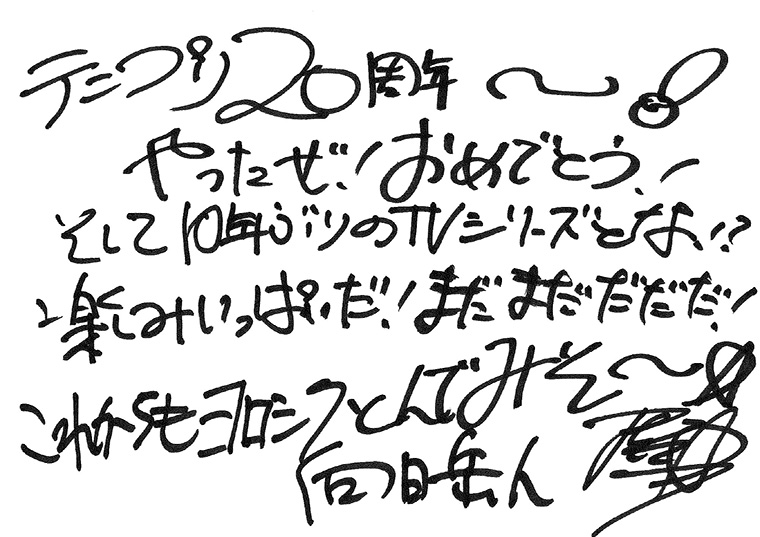 テニプリ20周年〜!
やったぜ!おめでとう!
そして10年ぶりのTVシリーズとな!?
楽しみいっぱいだ!まだまだだだだ!
これからもヨロシクとんでみそ〜!
向日岳人